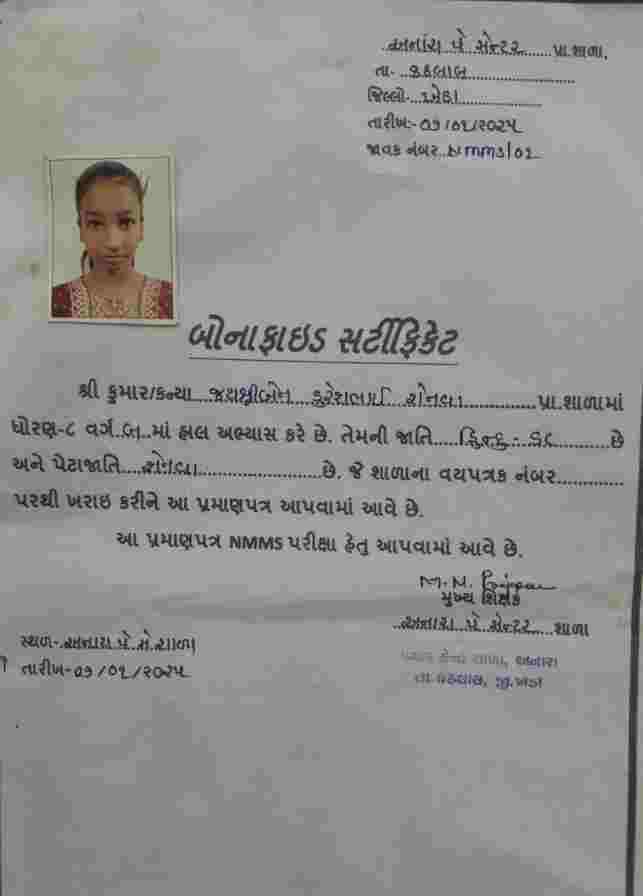 અનારા પે સેન્ટર પ્રા.શાળા.
તા- કઠલાલ
જિલ્લો- ખેડા
તારીખ:- ૦૧/૦૧/૨૦૨૫
જાવક નંબર. NMMS/૦૧
બોનાફાઇડ સર્ટીફિકેટ
શ્રી કુમાર/કન્યા જયશ્રીબેન સોનવા પ્રા.શાળામાં
ધોરણ-૮ વર્ગ બ માં હાલ અભ્યાસ કરે છે. તેમની જાતિ હિન્દુ- છે
અને પેટાજાતિ છે. જે શાળાના વયપત્રક નંબર
પરથી ખરાઇ કરીને આ પ્રમાણપત્ર આપવામાં આવે છે.
આ પ્રમાણપત્ર NMMS પરીક્ષા હેતુ આપવામાં આવે છે.
M. M.
મુખ્ય શિક્ષક
અનારા પે સેન્ટર શાળા
સ્થળ- અનારા પે સે શાળા
શાળા, અનારા
તારીખ- ૦૧/૦૧/૨૦૨૫
તા. કઠલાલ, જી.ખેડા